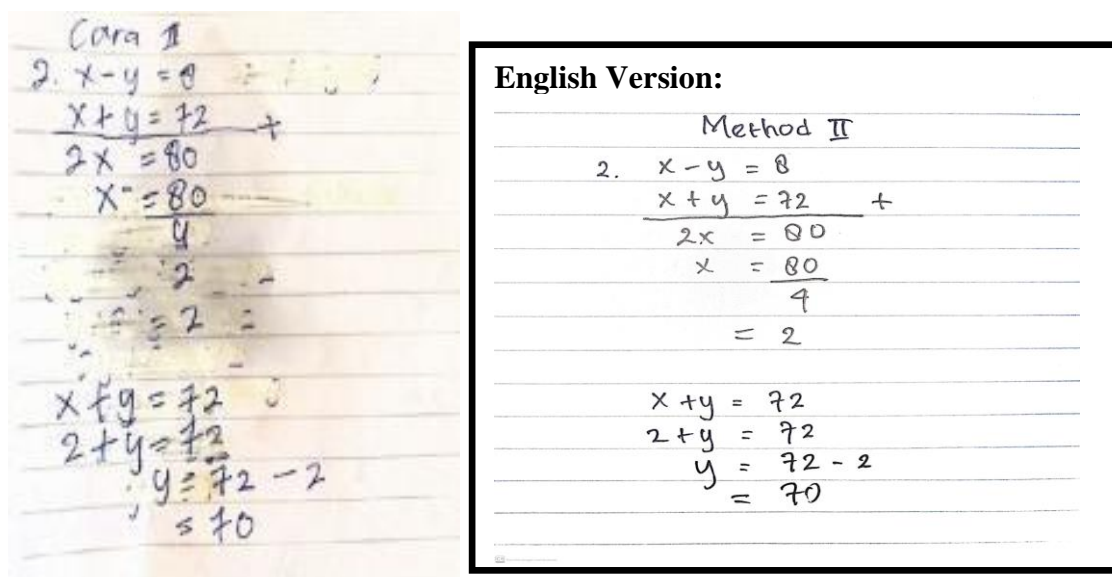 Cara II
2. x - y = 8
x + y = 72 +
2x = 80
x = 80
4
2
= 2
x + y = 72
2 + y = 72
y = 72 - 2
= 70
English Version:
Method II
2. x - y = 8
x + y = 72 +
2x = 80
x = 80
4
= 2
x + y = 72
2 + y = 72
y = 72 - 2
= 70